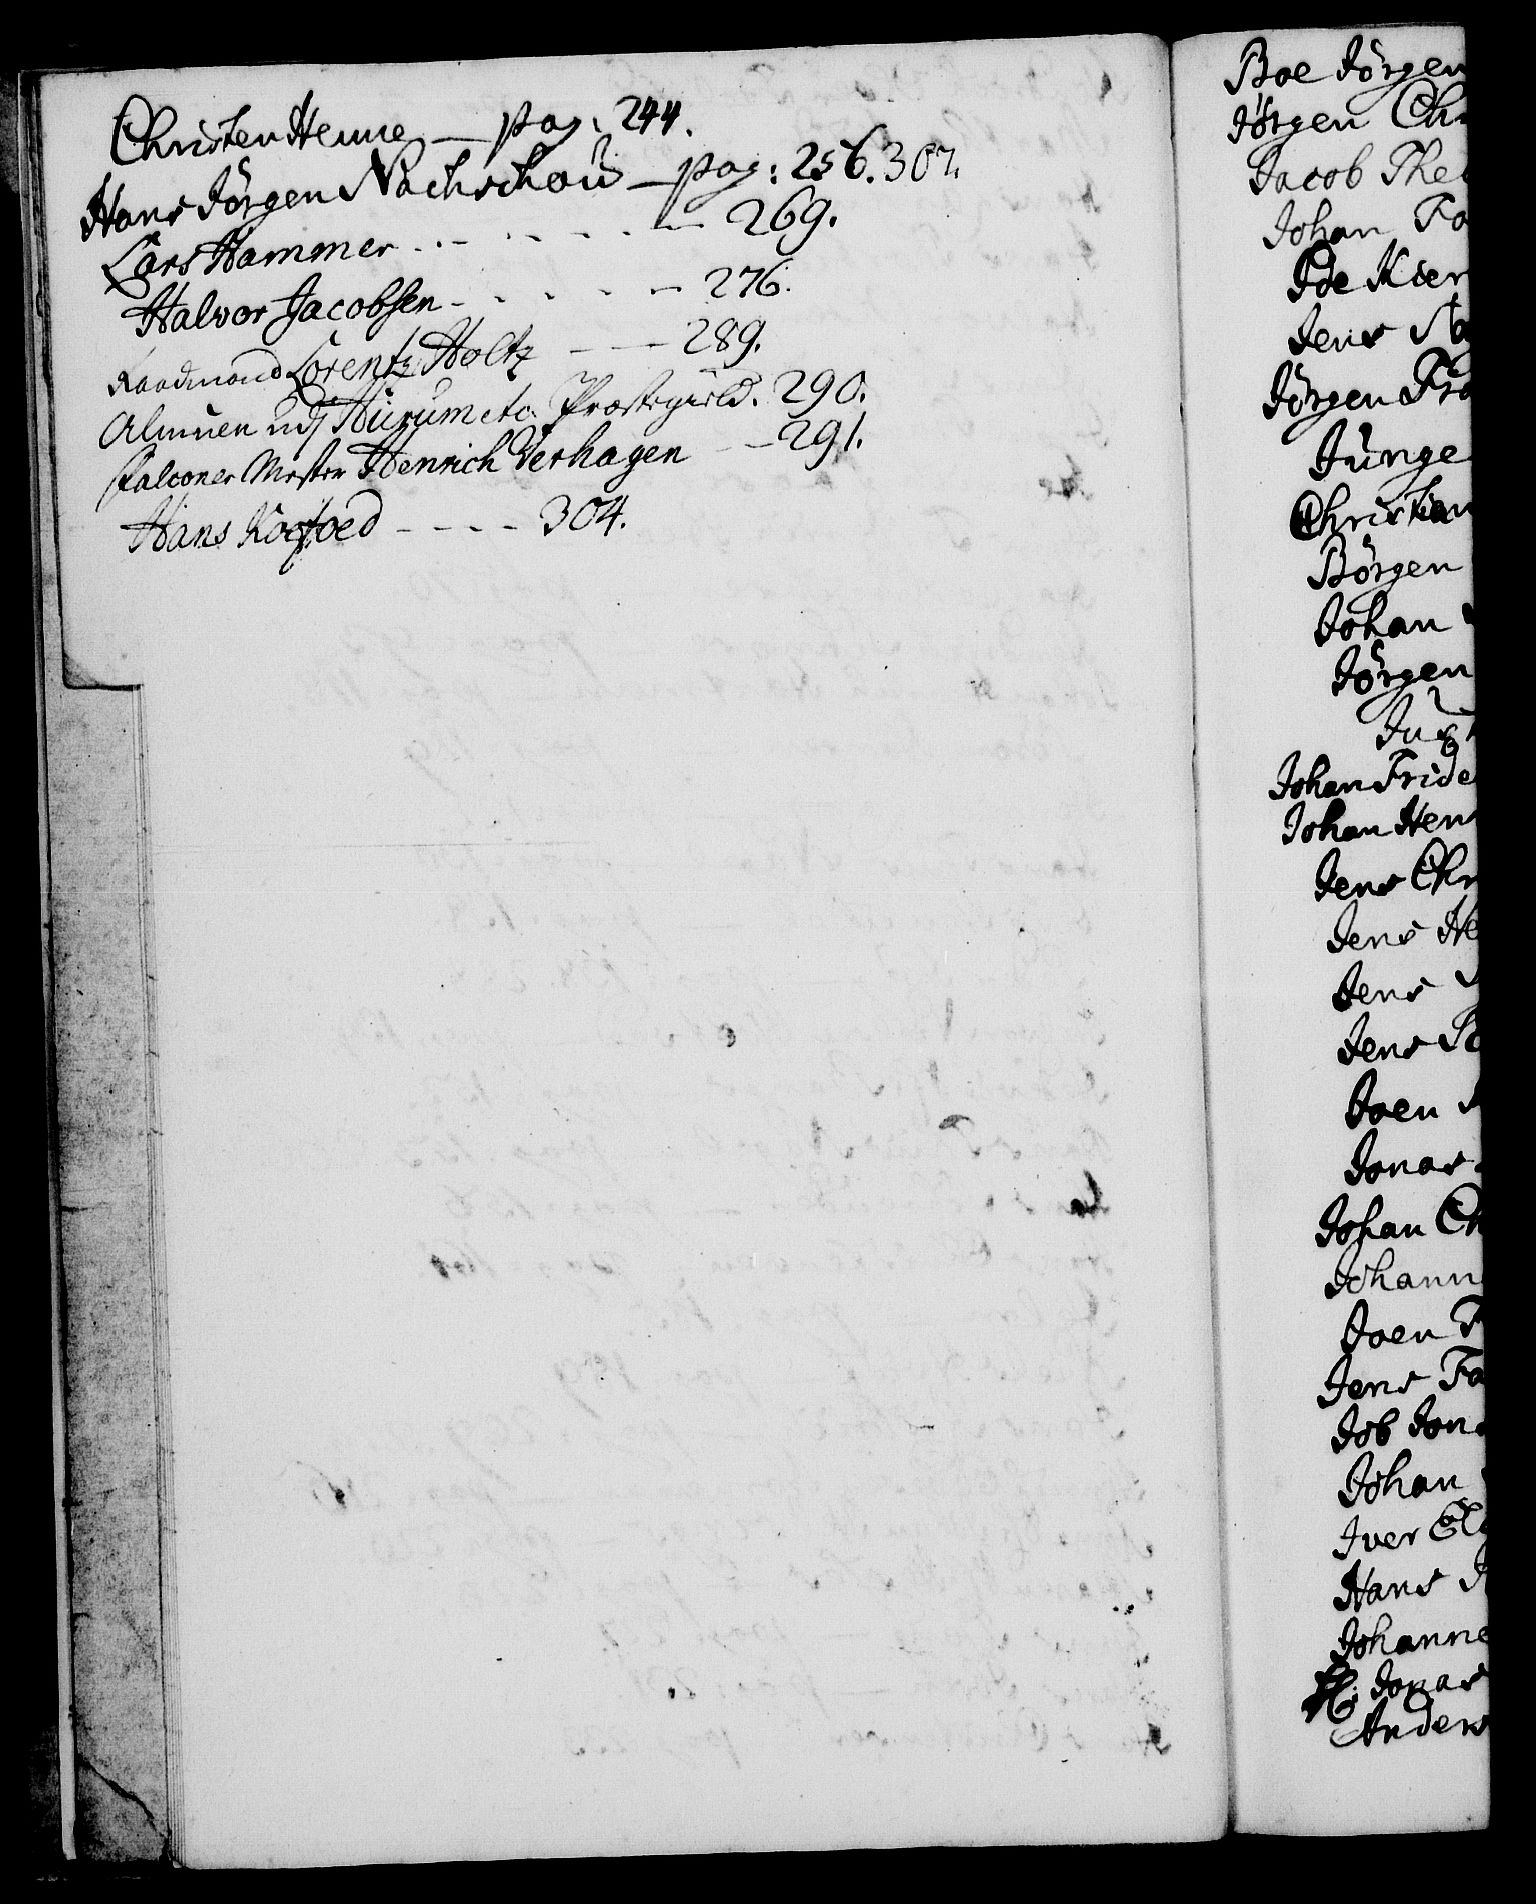 Christen Henne — pag: 244.
Hans Jörgen Nachschou — pag: 256. 307.
Lars Hammer - - - - - - 269.
Halvor Jacobsen - - - - - 276.
Raadmand Lorentz Holtz - — 289.
Almuen udj Hurum etc. Præstegield. 290.
Falconer Mester Henrich Verhagen - 291.
Hans Kofoed - - - - 304.
Boe Jörgen
Jörgen Chr
Jacob The
Johan Fo
Ide Kier
Jens No
Jörgen Fra
Junge
Christian
Börgen
Johan
Jörgen
Just
Johan Fride
Johan Hen
Jens Chr
Jens He
Jens
Jens So
Joen
Jonas
Johan Ch
Johann
Joen
Jens Fa
Job Jon
Johan
Iver El
Hans
Johanne
H: Jonas
Anders